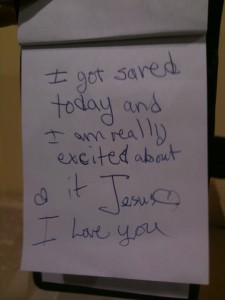 I got saved
today and
I am really
excited about
it Jesus
I Love you